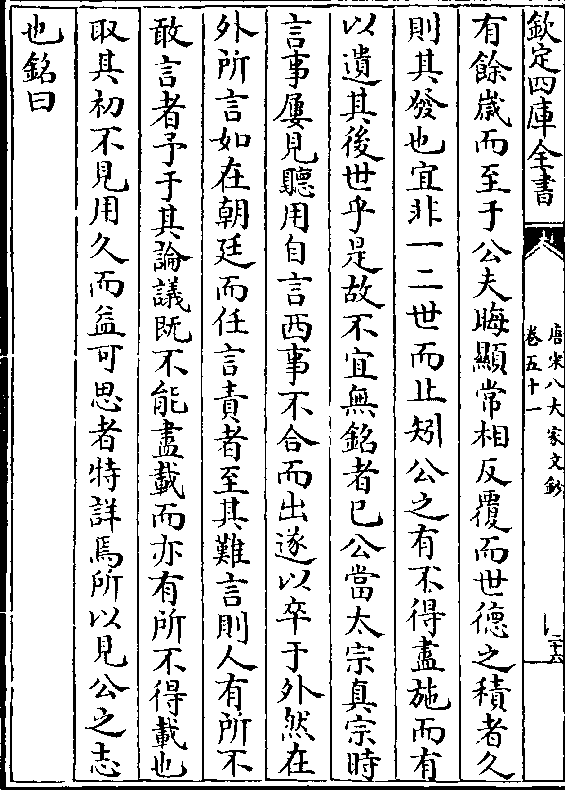 欽定四庫全書
唐宋八大家文鈔
卷五十一
二十六
有餘歲而至于公夫晦顯常相反覆而世德之積者久
則其發也宜非一二世而止矧公之有不得盡施而有
以遺其後世乎是故不宜無銘者已公當太宗真宗時
言事屢見聽用自言西事不合而出遂以卒于外然在
外所言如在朝廷而任言責者至其難言則人有所不
敢言者予于其論議既不能盡載而亦有所不得載也
取其初不見用久而益可思者特詳焉所以見公之志
也銘曰